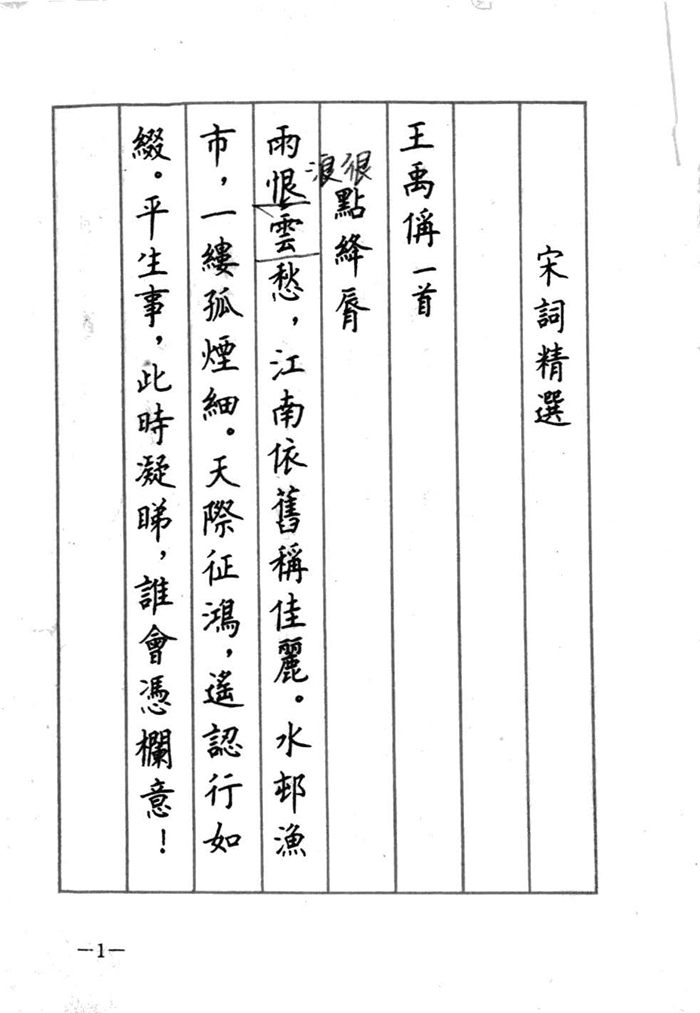 宋詞精選
王禹偁一首
點絳脣
很
浪
雨恨雲愁，江南依舊稱佳麗。水邨漁
市，一縷孤煙細。天際征鴻，遙認行如
綴。平生事，此時凝睇，誰會憑欄意！
—1—